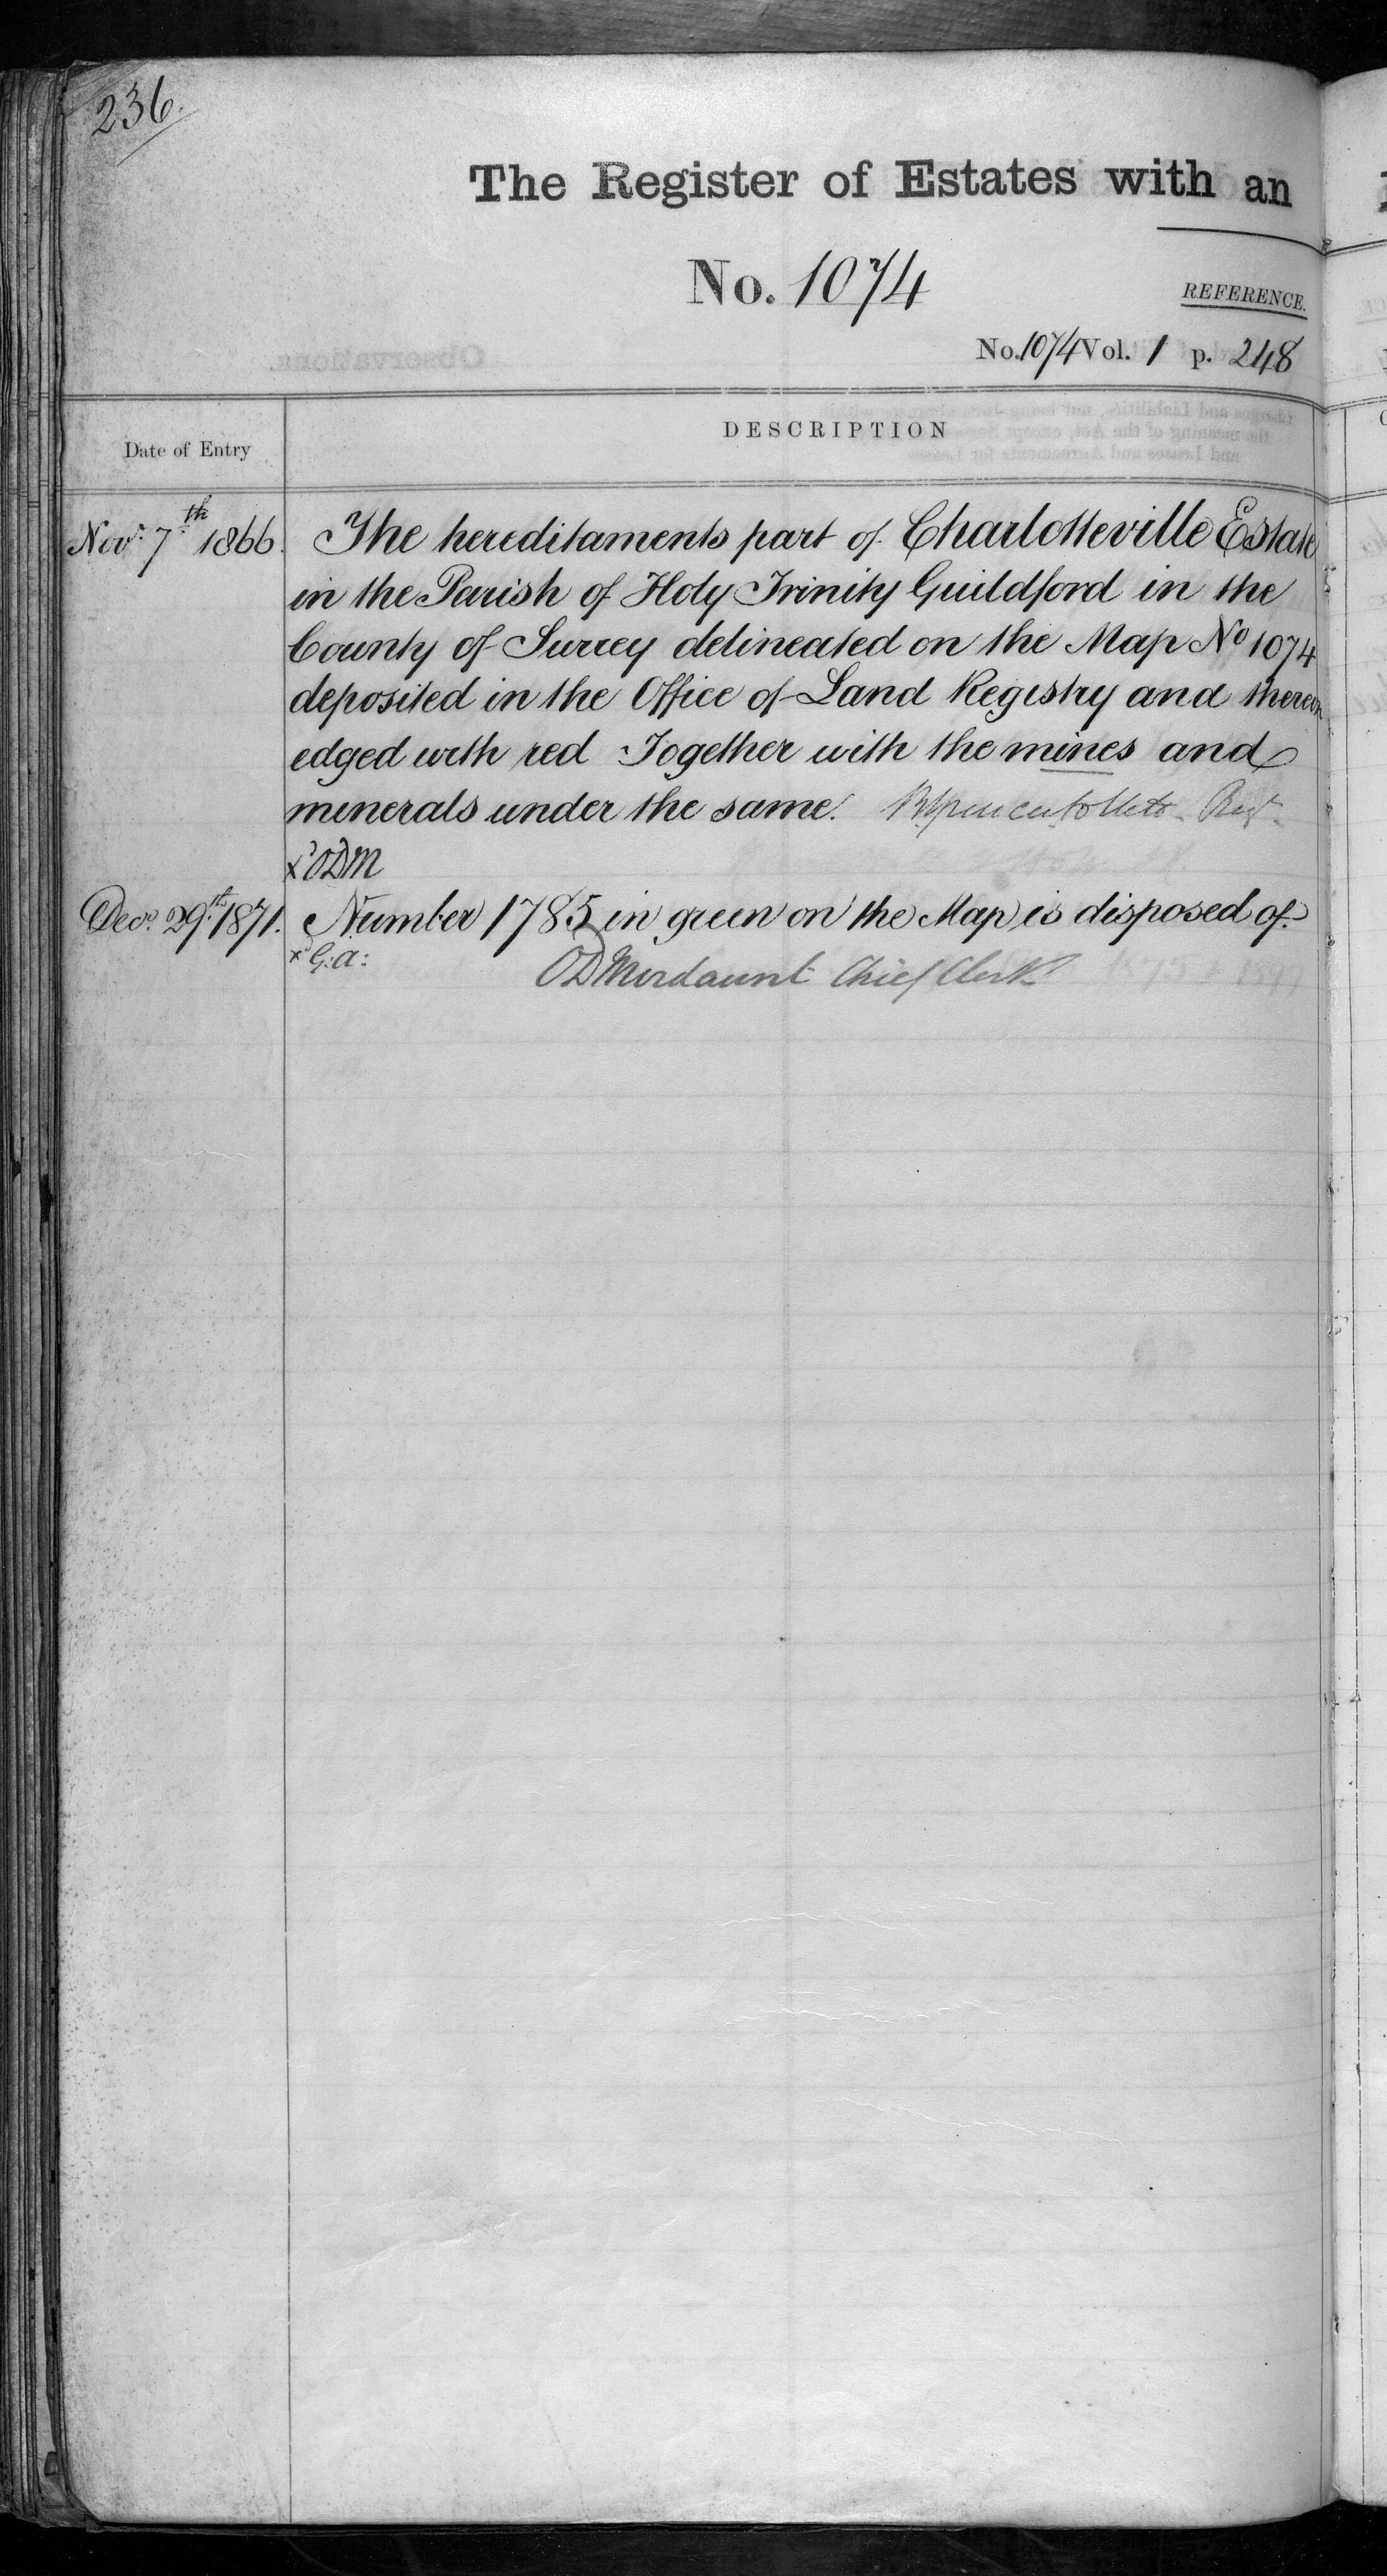 236.
The Register of Estates with an
No. 1074
REFERENCE.
No. 1074 Vol. 1 p. 248
Date of Entry
DESCRIPTION
Novr. 7th 1866. The hereditaments part of Charlotteville Estate
in the Parish of Holy Trinity Guildford in the
County of Surrey delineated on the Map No 1074
deposited in the Office of Land Registry and thereon
edged with red Together with the mines and
minerals under the same. Regr.
x ODM
Decr. 29th 1871. Number 1785 in green on the Map is disposed of.
x G: A:
ODMordaunt Chief Clerk